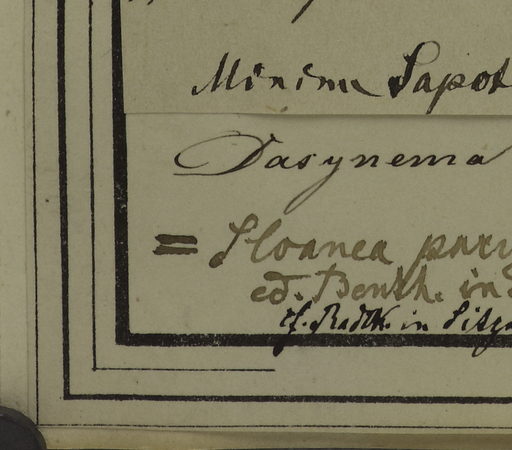 Minime Sapot
Dasynema
= Sloanea parv
ed. Benth. in
cf. Radlk. in Sitzu